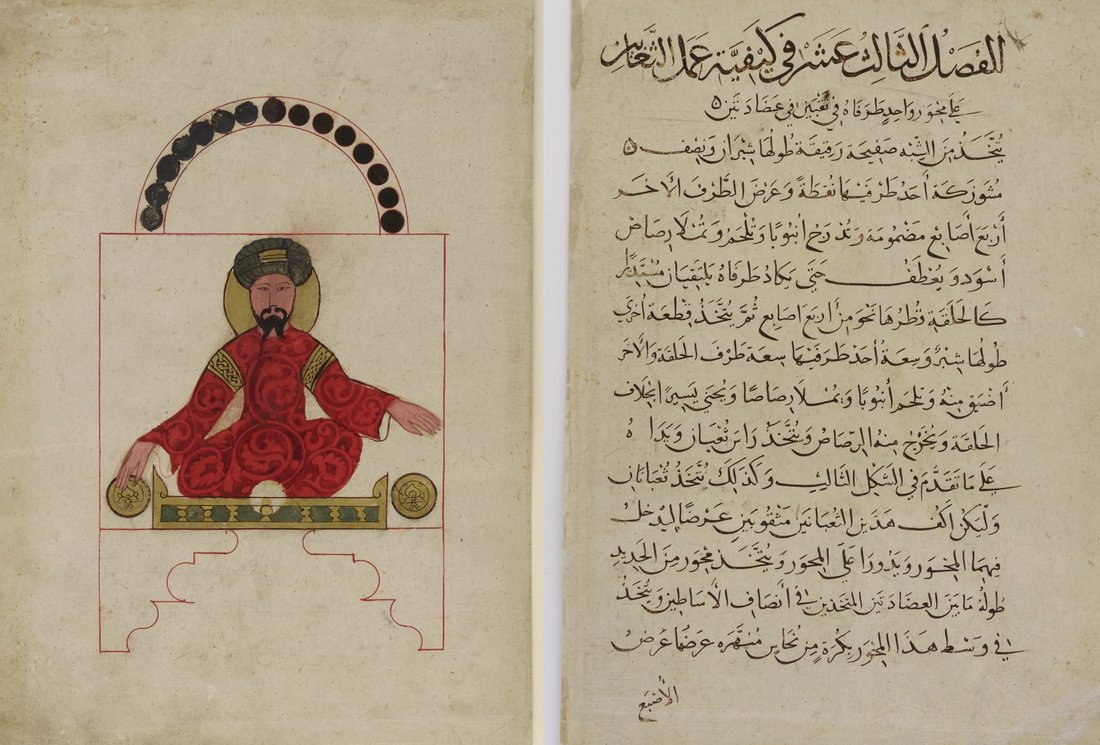 الفصل الثالث عشر في كيفية عمل الثعابين
على محور واحد طرفاه في ثقبين في عضادتين
يتخذ من الشبه صفيحة رقيقة طولها شبران ونصف
مشوزكة أحد طرفيها نقطة وعرض الطرف الآخر
أربع أصابع مضمومة وتدرج أنبوبا وتلحم وتملأ رصاص
أسود ويعطف حتى يكاد طرفاه يلتقيان مستديرا
كالحلقة قطرها نحو من أربع أصابع ثم يتخذ قطعة أخرى
طولها شبر وسعة أحد طرفيها سعة طرف الحلقة والآخر
أضيق منه وتلحم أنبوبا ويملأ رصاصا ويحنى يسيرا بخلاف
الحلقة ويخرج منه الرصاص ويتخذ رأس ثعبان ويداه
على ما تقدم في الشكل الثالث وكذلك يتخذ ثعبانان
وليكن أكف هذين الثعبانين مثقوبين عرضا ليدخل
فيهما المحور ويدورا على المحور ويتخذ محور من الحديد
طوله ما بين العضادتين المتخذين في أنصاف الأساطين ويتخذ
في وسط هذا المحور بكرة من نحاس منتهره عرضها عرض
الأصبع